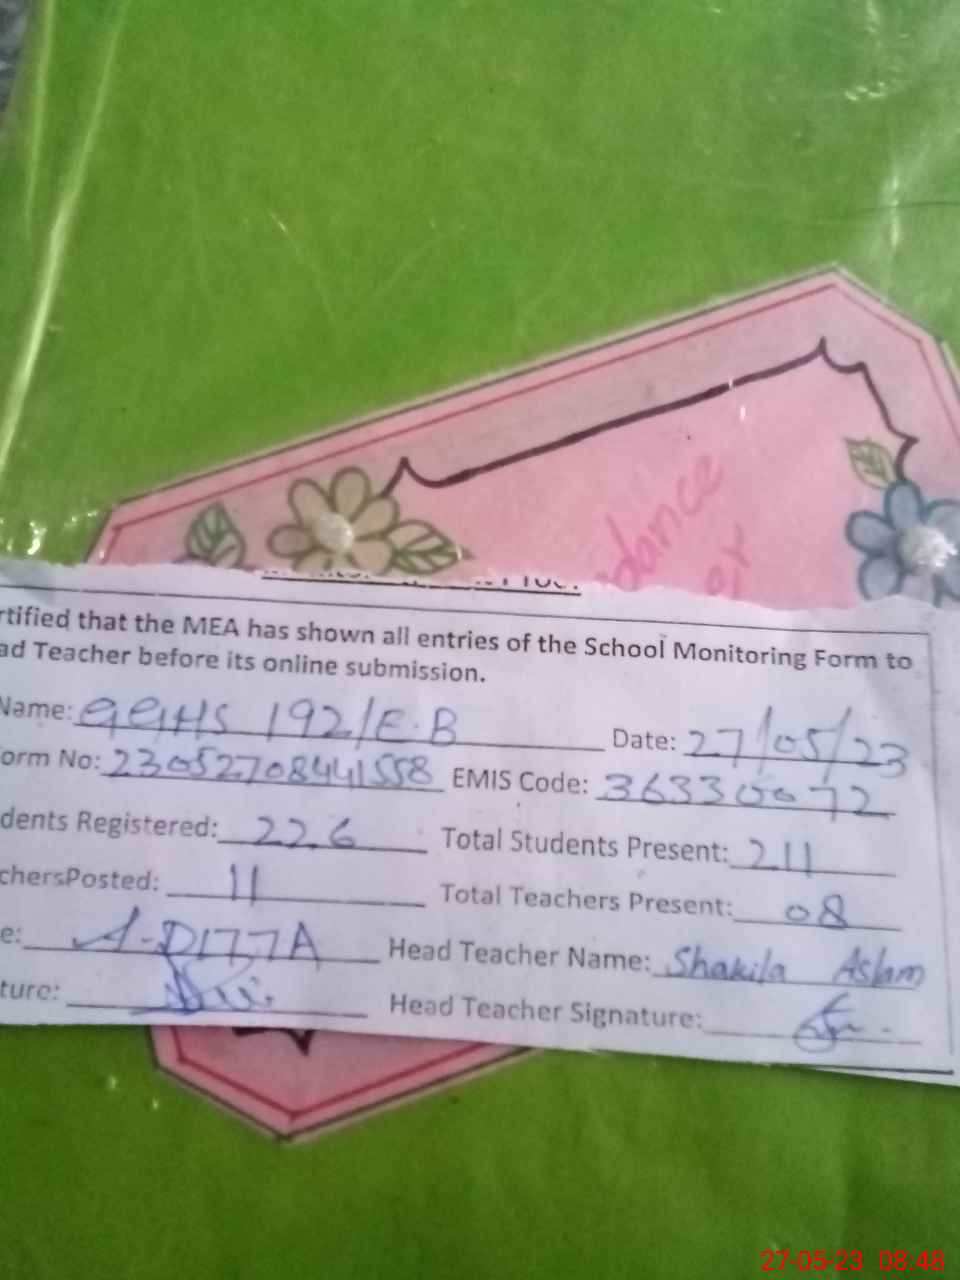 dance
rtified that the MEA has shown all entries of the School Monitoring Form to
ad Teacher before its online submission.
Name: GGHS 192/E.B Date: 27/05/23
orm No: 23052708441558 EMIS Code: 36330072
dents Registered: 226 Total Students Present: 211
chersPosted: 11 Total Teachers Present: 08
e: A-D177A Head Teacher Name: Shakila Aslam
ture: Head Teacher Signature:
27-05-23 08:48